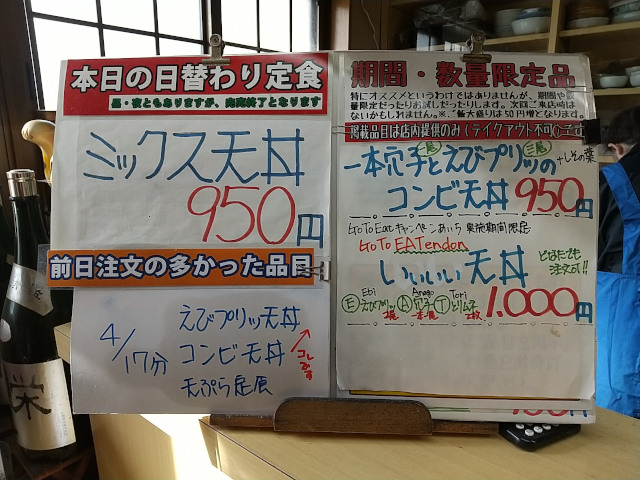 本日の日替わり定食
昼・夜ともありますが、完売終了となります
ミックス天丼
950円
前日注文の多かった品目
4/17分
えびプリッツ天丼
コンビ天丼
天ぷら定食
期間・数量限定品
特にオススメというわけではありませんが、期間や数
量限定だったりお試しだったりします。次回ご来店時は
ないかもしれません。※ご飯大盛りは50円増となります。
掲載品目は店内提供のみ(テイクアウト不可)です
一本穴子とえびプリッツの
+しその葉
コンビ天丼 950円
GoToEatキャンペーンあいち 実施期間限定
GoTo EATendon
いいいい天丼
どなたでも
注文可!!
1.000円
Ebi Anago Tori
E えびプリッツ A 穴子 T とり
栄